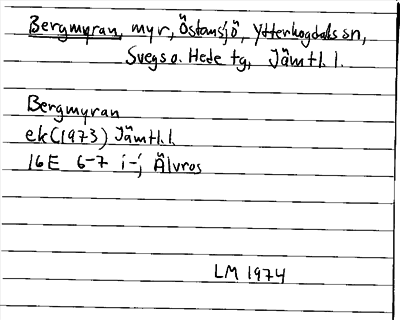 Bergmyran, myr, Östansjö, Ytterhogdals sn,
Svegs o. Hede tg, Jämtl. l.
Bergmyran
ek (1973) Jämtl. l.
16E 6-7 i-j Älvros
LM 1974